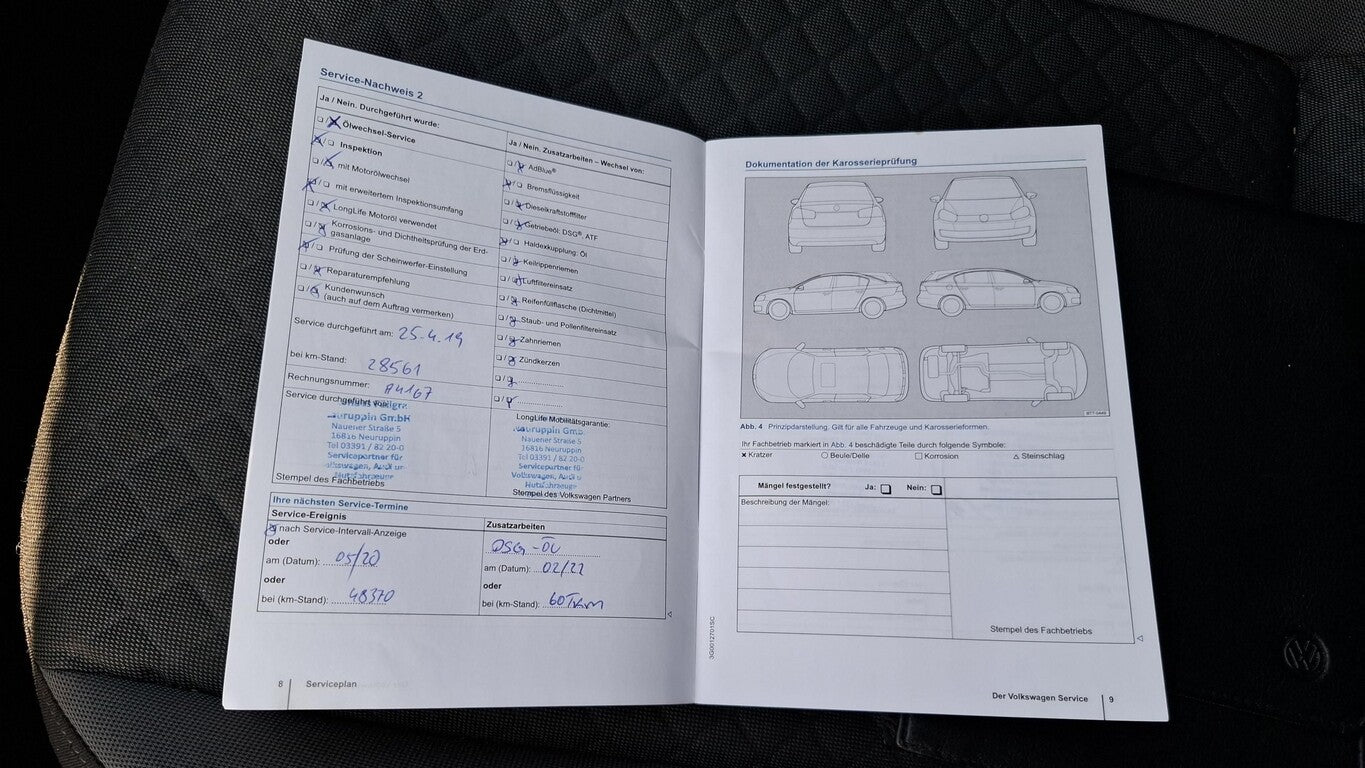 Service-Nachweis 2
Ja / Nein. Durchgeführt wurde:
Ölwechsel-Service
Inspektion
mit Motorölwechsel
mit erweitertem Inspektionsumfang
LongLife Motoröl verwendet
Korrosions- und Dichtheitsprüfung der Erd-
gasanlage
Prüfung der Scheinwerfer-Einstellung
Reparaturempfehlung
Kundenwunsch
(auch auf dem Auftrag vermerken)
Service durchgeführt am: 25.4.19
bei km-Stand: 28561
Rechnungsnummer: A4167
Service durchgeführt
Neuruppin GmbH
Nauener Straße 5
16816 Neuruppin
Tel 03391 / 82 20-0
Servicepartner für
Stempel des Fachbetriebs
Ja / Nein. Zusatzarbeiten – Wechsel von:
AdBlue®
Bremsflüssigkeit
Dieselkraftstofffilter
Getriebeöl: DSG®, ATF
Haldexkupplung: Öl
Keilrippenriemen
Luftfiltereinsatz
Reifenfüllflasche (Dichtmittel)
Staub- und Pollenfiltereinsatz
Zahnriemen
Zündkerzen
LongLife Mobilitätsgarantie:
Nauener Straße 5
16816 Neuruppin
Tel 03391 / 82 20-0
Servicepartner für
Volkswagen, Audi u
Nutzfahrzeuge
Stempel des Volkswagen Partners
Ihre nächsten Service-Termine
Service-Ereignis
nach Service-Intervall-Anzeige
oder
am (Datum): 05/20
oder
bei (km-Stand): 48370
Zusatzarbeiten
DSG-ÖL
am (Datum): 02/22
oder
bei (km-Stand): 60Tkm
8 Serviceplan
3G0012701SC
Dokumentation der Karosserieprüfung
BT7-0449
Abb. 4 Prinzipdarstellung. Gilt für alle Fahrzeuge und Karosserieformen.
Ihr Fachbetrieb markiert in Abb. 4 beschädigte Teile durch folgende Symbole:
Kratzer Beule/Delle Korrosion Steinschlag
Mängel festgestellt? Ja: Nein:
Beschreibung der Mängel:
Stempel des Fachbetriebs
Der Volkswagen Service 9